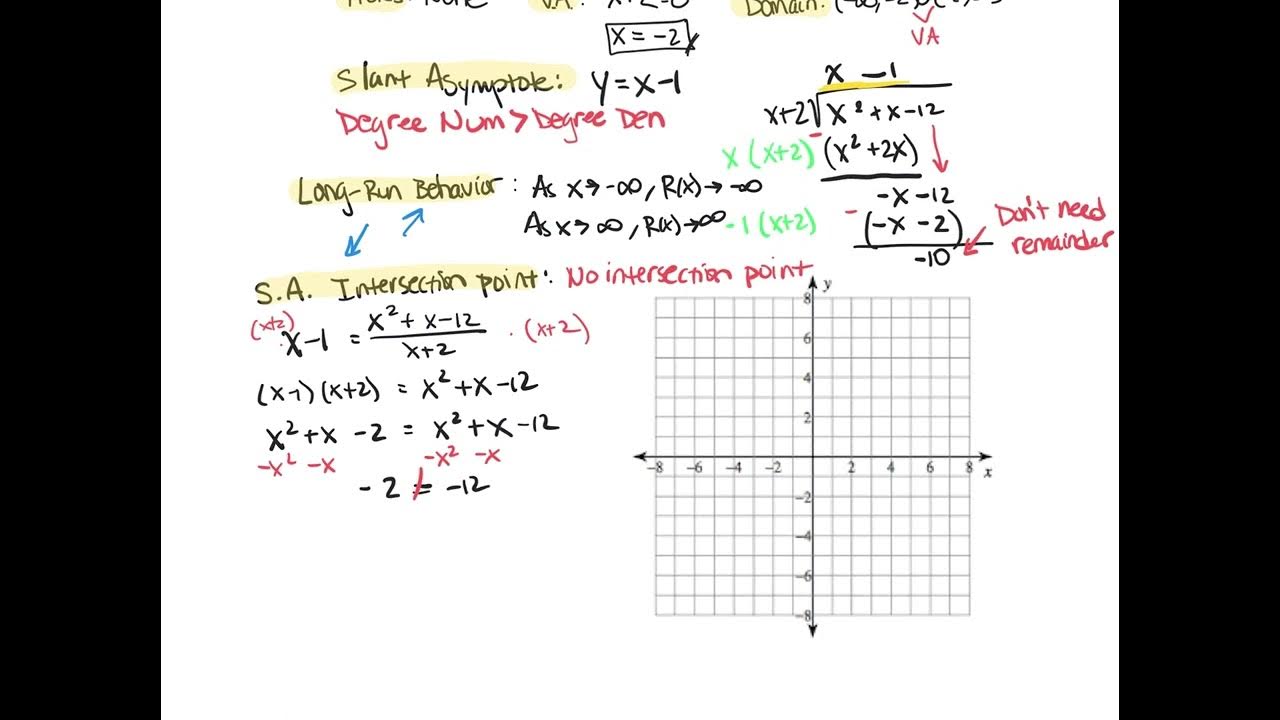 None V.A.: x+2=0 Domain:
x = -2
VA
Slant Asymptote: y = x-1
Degree Num > Degree Den
x -1
x+2 x² + x -12
x (x+2) - (x² + 2x)
-x -12
-1 (x+2) - (-x - 2)
-10
Don't need
remainder
Long-Run Behavior: As x→ -∞, R(x)→ -∞
As x→ ∞, R(x)→∞
S.A. Intersection point: No intersection point
(x+2) · x-1 = x² + x -12 / x+2 · (x+2)
(x-1)(x+2) = x² + x -12
x² + x -2 = x² + x -12
-x² -x -x² -x
-2 ≠ -12
y
8
6
4
2
-8 -6 -4 -2 2 4 6 8 x
-2
-4
-6
-8